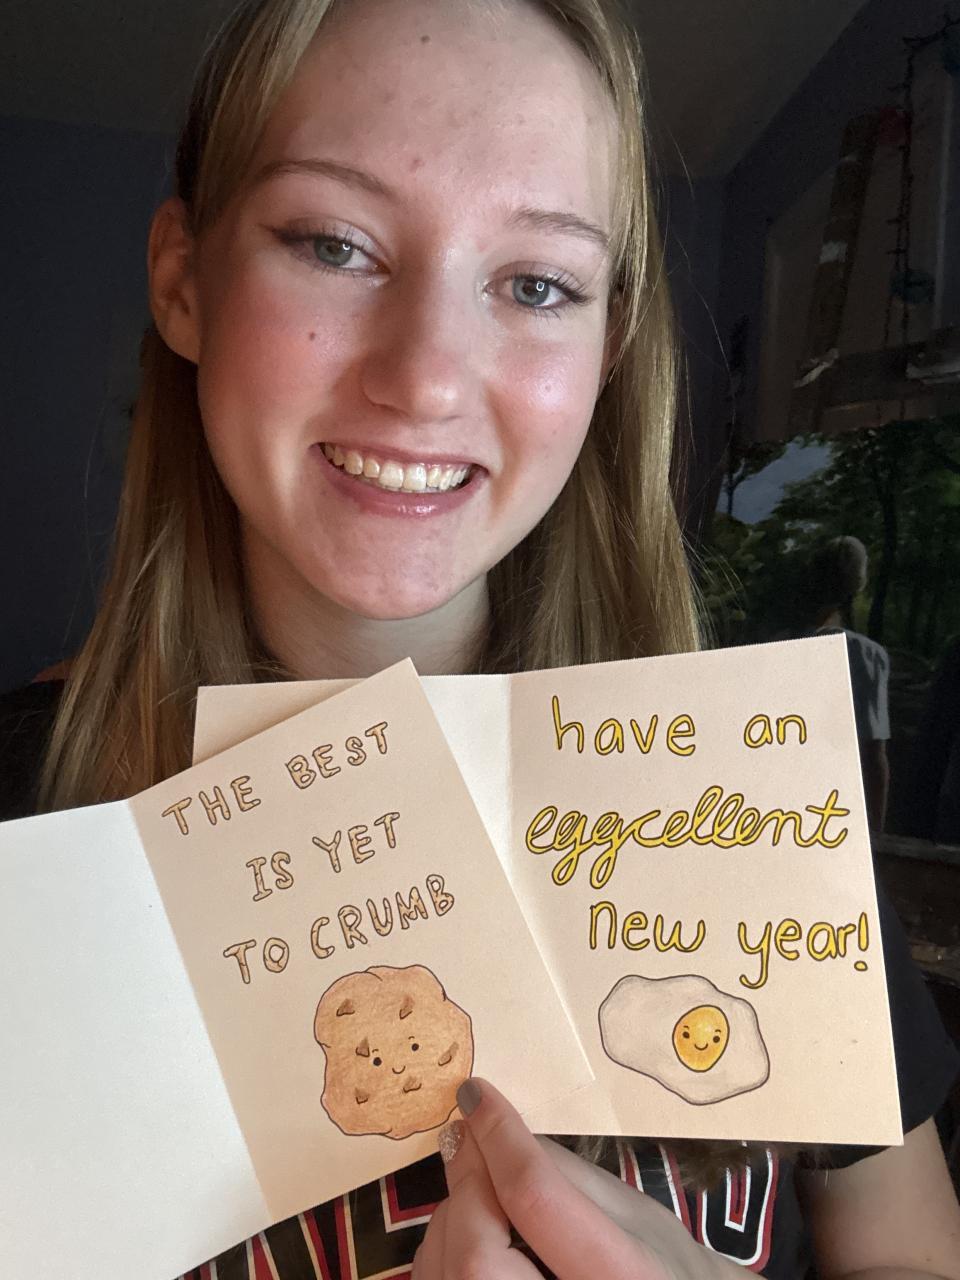 THE BEST
IS YET
TO CRUMB
have an
eggcellent
new year!